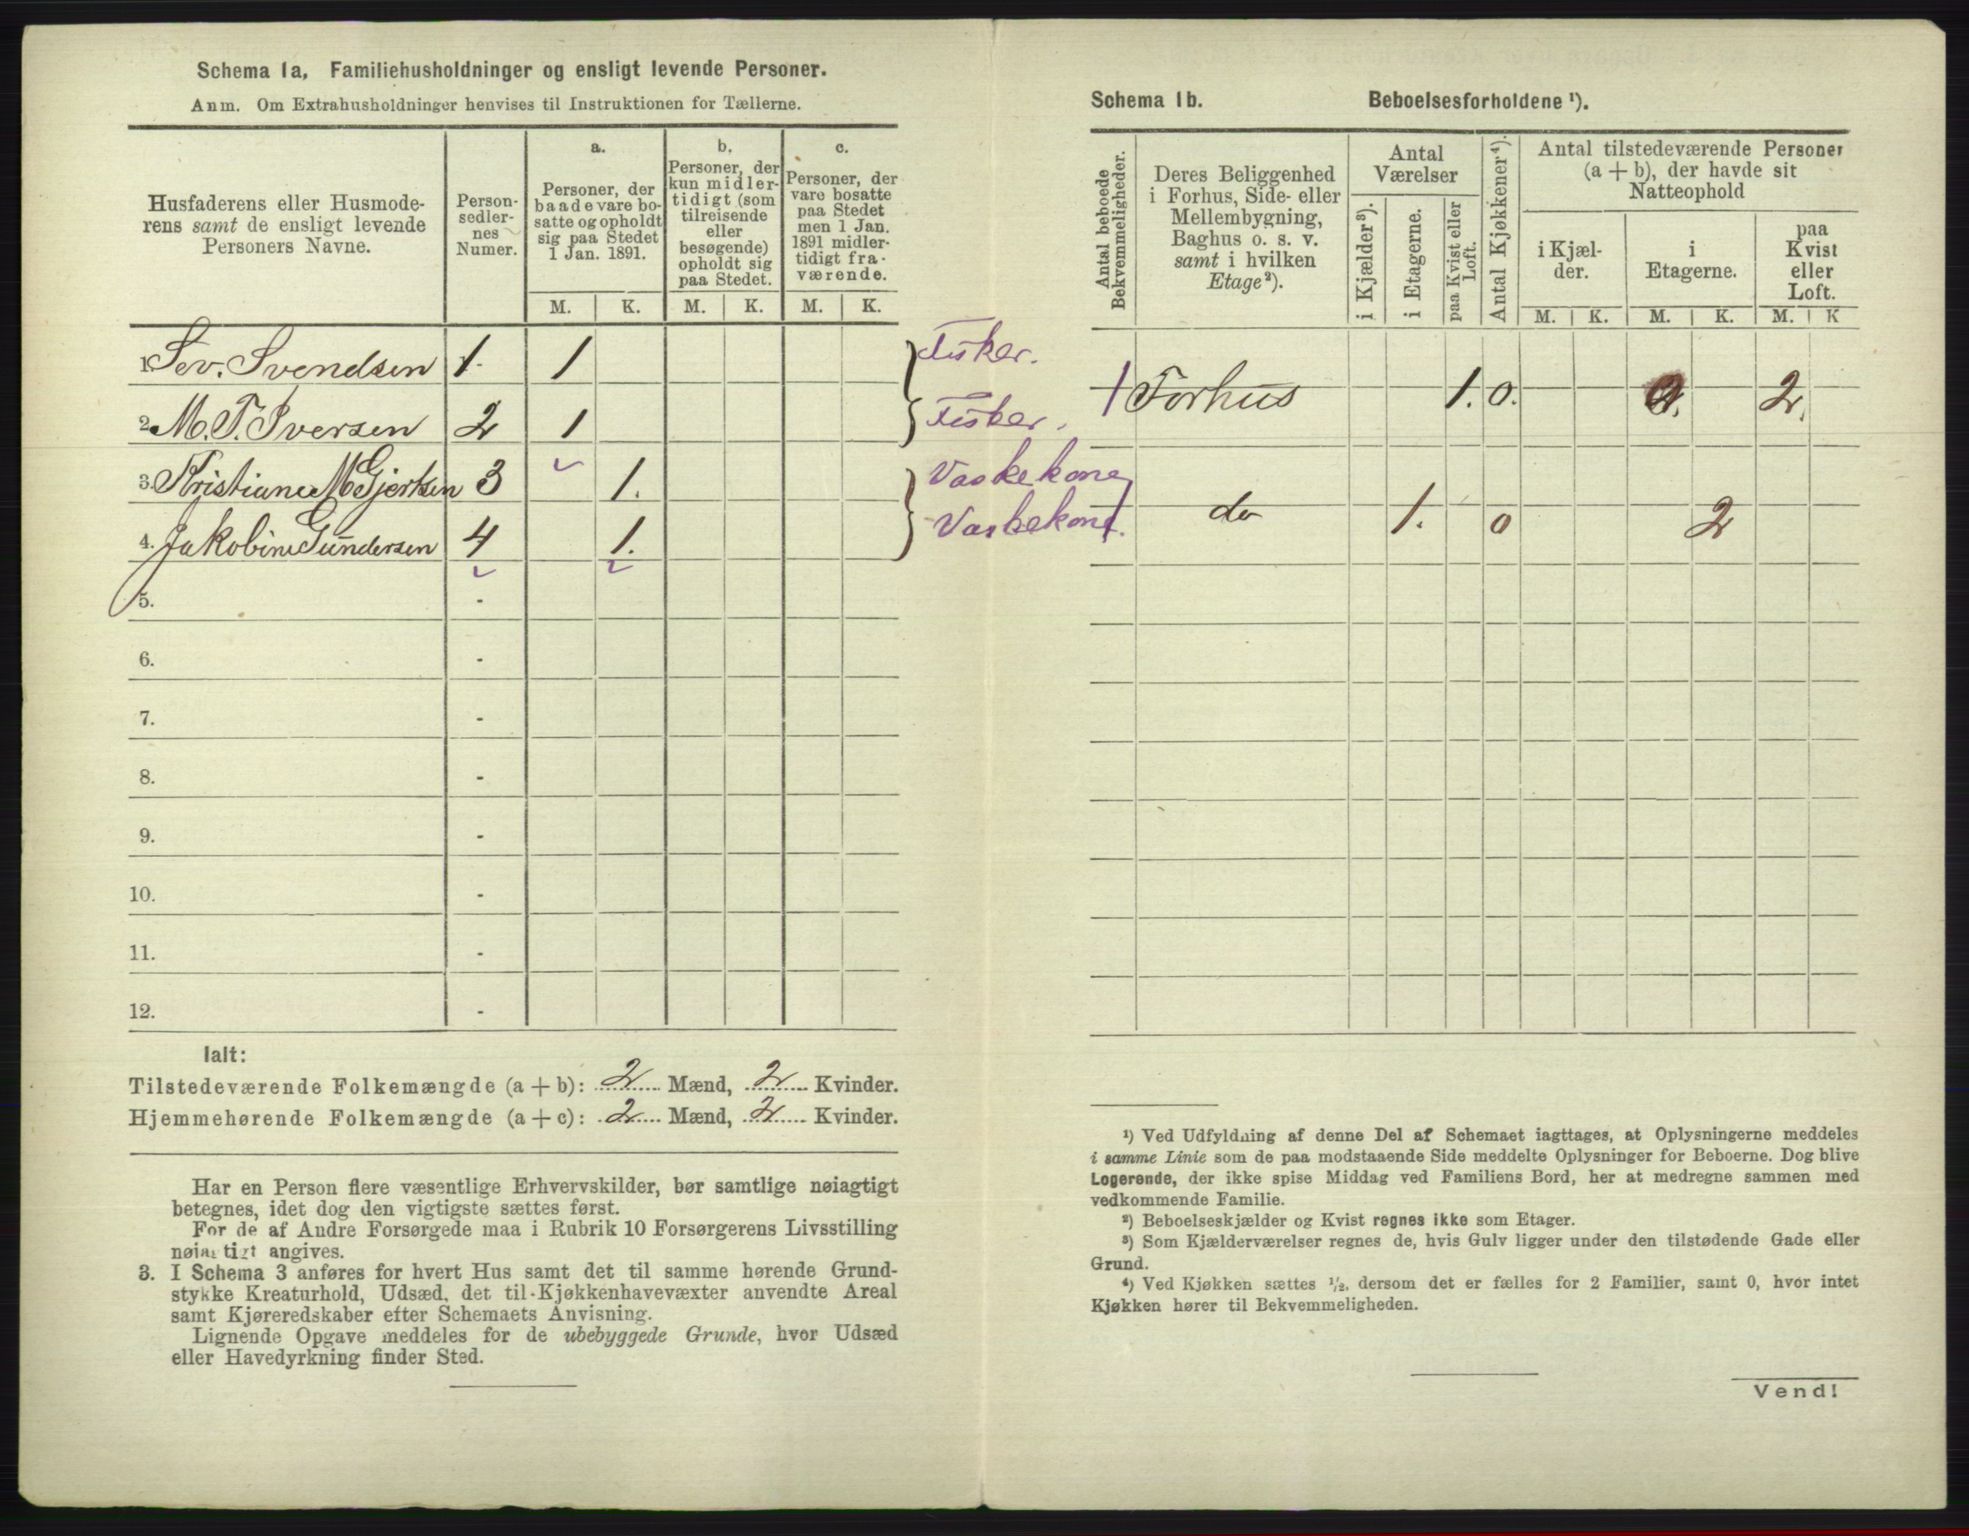 Schema 1a, Familiehusholdninger og ensligt levende Personer.
Anm. Om Extrahusholdninger henvises til Instruktionen for Tællerne.
Husfaderens eller Husmoderens samt de ensligt levende Personers Navne.
Personsedlernes Numer.
a.
Personer, der baade vare bosatte og opholdt sig paa Stedet 1 Jan. 1891.
b.
Personer, der kun midlertidigt (som tilreisende eller besøgende) opholdt sig paa Stedet.
c.
Personer, der vare bosatte paa Stedet men 1 Jan. 1891 midlertidigt fraværende.
M. K. M. K. M. K.
1. Sev. Svendsen 1. 1 Fisker.
2. M. T. Iversen 2 1 Fisker.
3. Kristiane M Gjertsen 3 1. Vaskekone
4. Jakobine Gundersen 4 1. Vaskekone.
5. -
6. -
7. -
8. -
9. -
10. -
11. -
12. -
Ialt:
Tilstedeværende Folkemængde (a + b): 2 Mænd, 2 Kvinder.
Hjemmehørende Folkemængde (a + c): 2 Mænd, 2 Kvinder.
Har en Person flere væsentlige Erhvervskilder, bør samtlige nøiagtigt
betegnes, idet dog den vigtigste sættes først.
For de af Andre Forsørgede maa i Rubrik 10 Forsørgerens Livsstilling
nøiagtigt angives.
3. I Schema 3 anføres for hvert Hus samt det til samme hørende Grund-
stykke Kreaturhold, Udsæd, det til Kjøkkenhavevæxter anvendte Areal
samt Kjøreredskaber efter Schemaets Anvisning.
Lignende Opgave meddeles for de ubebyggede Grunde, hvor Udsæd
eller Havedyrkning finder Sted.
Schema 1b. Beboelsesforholdene ¹).
Antal beboede Bekvemmeligheder.
Deres Beliggenhed i Forhus, Side- eller Mellembygning, Baghus o. s. v. samt i hvilken Etage²).
Antal Værelser
i Kjælder³).
i Etagerne.
paa Kvist eller Loft.
Antal Kjøkkener⁴).
Antal tilstedeværende Personer (a + b), der havde sit Natteophold
i Kjælder.
i Etagerne.
paa Kvist eller Loft.
M. K. M. K. M. K
1 Forhus 1. 0. 2. 2.
1 do 1. 0 2
¹) Ved Udfyldning af denne Del af Schemaet iagttages, at Oplysningerne meddeles
i samme Linie som de paa modstaaende Side meddelte Oplysninger for Beboerne. Dog blive
Logerende, der ikke spise Middag ved Familiens Bord, her at medregne sammen med
vedkommende Familie.
²) Beboelseskjælder og Kvist regnes ikke som Etager.
³) Som Kjælderværelser regnes de, hvis Gulv ligger under den tilstødende Gade eller
Grund.
⁴) Ved Kjøkken sættes ½, dersom det er fælles for 2 Familier, samt 0, hvor intet
Kjøkken hører til Bekvemmeligheden.
Vend!